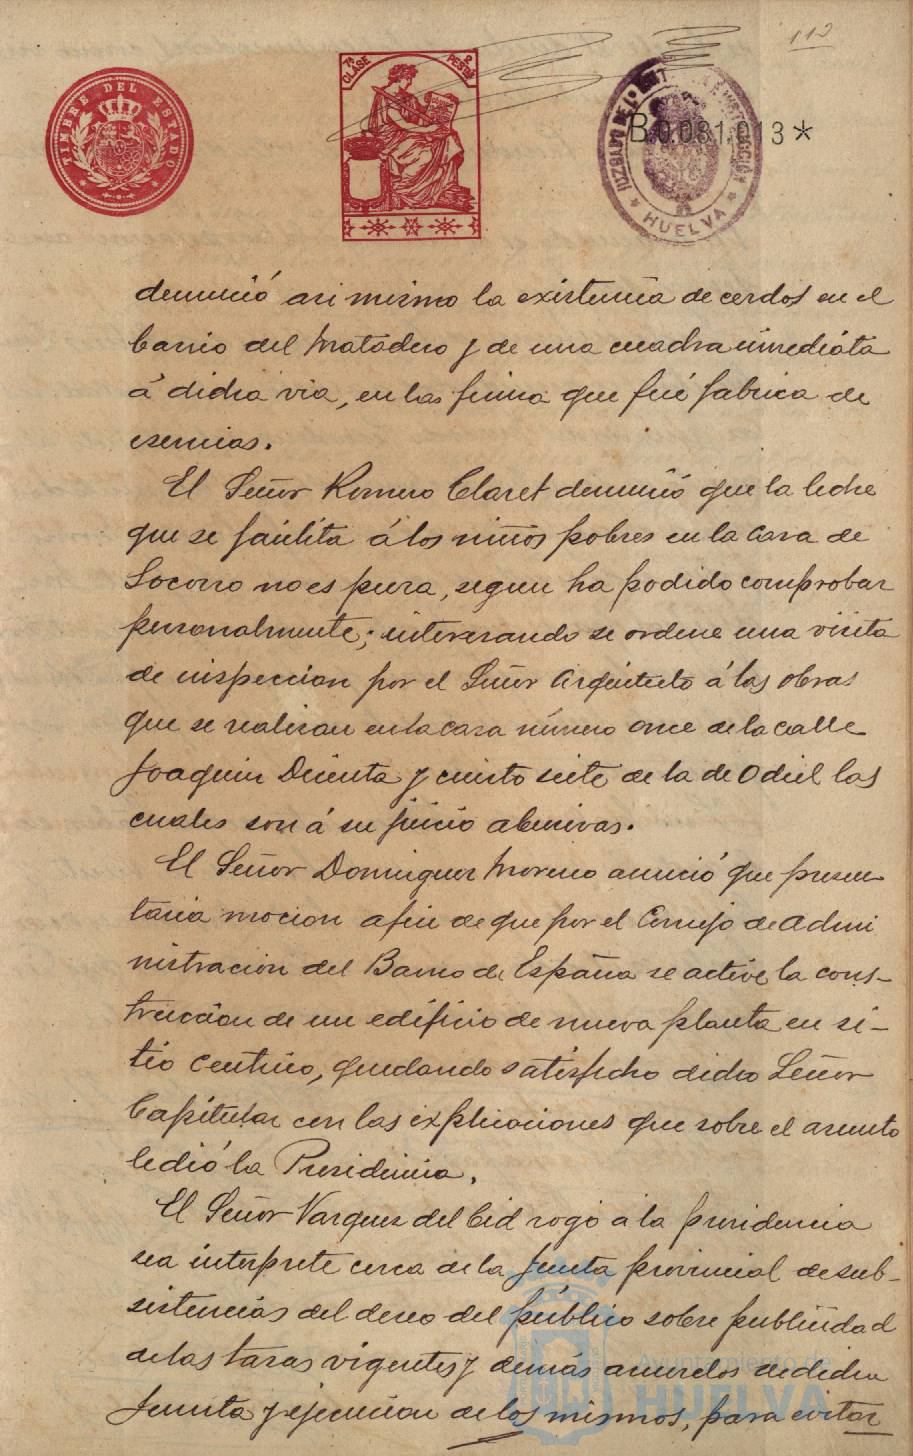 112
TIMBRE DEL ESTADO
7ª CLASE
PESTAS
JUZGADO DE 1ª INSTANCIA E INSTRUCCION
HUELVA
B.0.081.013*
denunció asi mismo la existencia de cerdos en el
barrio del Matadero y de una cuadra inmediata
á dicha via, en las finca que fué fabrica de
esencias.
El Señor Romero Claret denunció que la leche
que se facilita á los niños pobres en la Casa de
Socorro no es pura, segun ha podido comprobar
personalmente; interesando se ordene una visita
de inspeccion por el Señor Arquitecto á las obras
que se realizan en la casa número once de la calle
Joaquin Dicenta y ciento siete de la de Odiel las
cuales son á su juicio abusivas.
El Señor Dominguez Moreno anunció que presen
taria mocion afin de que por el Consejo de Admi
nistracion del Banco de España se active la cons-
trucción de un edificio de nueva planta en si-
tio centrico, quedando satisfecho dicho Señor
Capitular con las explicaciones que sobre el asunto
le dió la Presidencia.
El Señor Vazquez del Cid rogó á la presidencia
sea interprete cerca de la Junta provincial de sub-
sistencias del deseo del público sobre publicidad
de las tasas vigentes y demás acuerdos de dicha
Junta y ejecucion de los mismos, para evitar
Ayuntamiento de
HUELVA